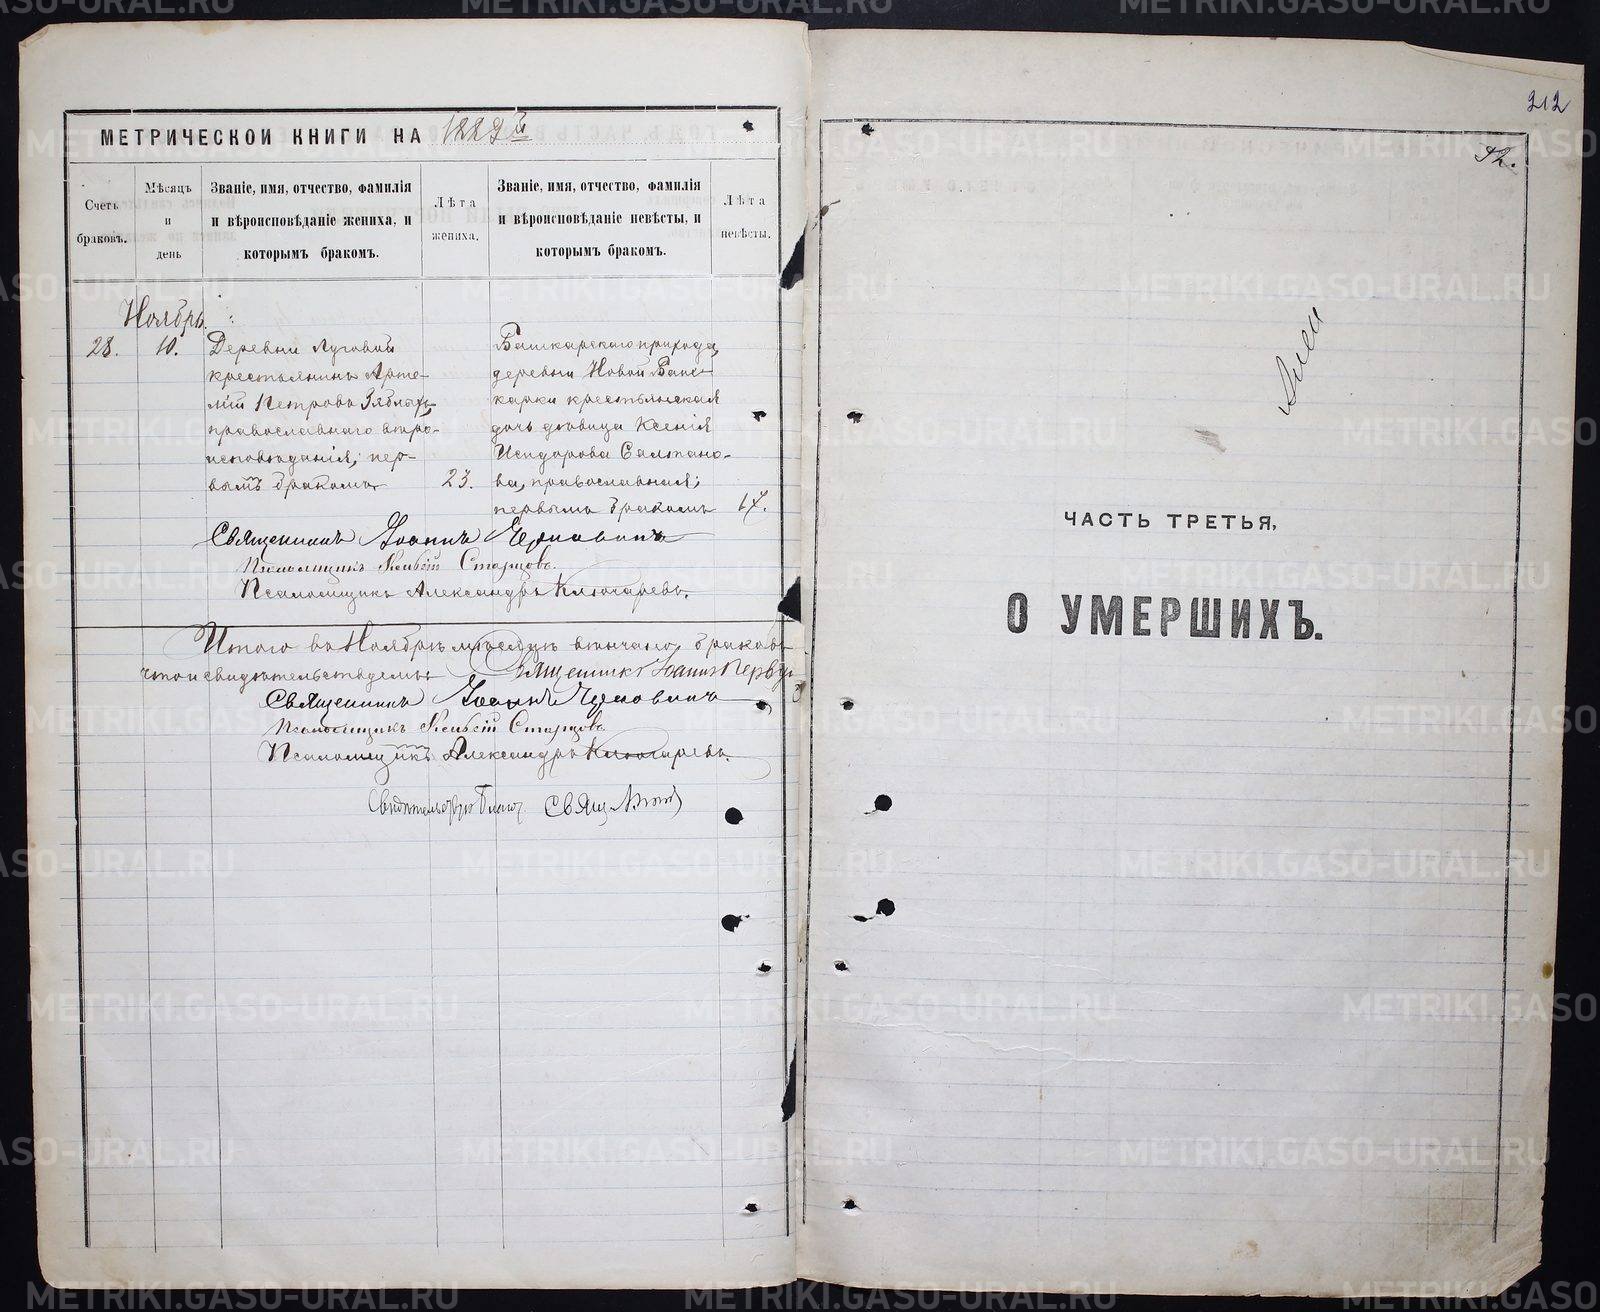 МЕТРИЧЕСКОЙ КНИГИ НА 1889й
Счетъ браковъ.
Мѣсяцъ и день
Званіе, имя, отчество, фамилія
и вѣроисповѣданіе жениха, и
которымъ бракомъ.
Лѣта жениха.
Званіе, имя, отчество, фамилія
и вѣроисповѣданіе невѣсты, и
которымъ бракомъ.
Лѣта невѣсты.
Ноябрь.
28.
10.
Деревни Луговой
крестьянинъ Арте-
мій Петровъ
православнаго вѣро-
исповѣданія; пер-
вымъ бракомъ
23.
Башкарскаго прихода,
деревни Новой Баш-
карки крестьянская
дочь дѣвица Ксенія
Исидорова Салтано-
ва, православная;
первымъ бракомъ
17.
Священникъ Іоаннъ
Псаломщикъ Старцовъ.
Псаломщикъ Александръ Ключаревъ.
Итого въ Ноябрѣ мѣсяцѣ вѣнчано браковъ
что и свидѣтельствуемъ: Священникъ Іоаннъ
Священникъ Іоаннъ
Псаломщикъ Старцовъ
Псаломщикъ Александръ Ключаревъ.
Свящ.
212
ЧАСТЬ ТРЕТЬЯ,
О УМЕРШИХЪ.
METRIKI.GASO-URAL.RU